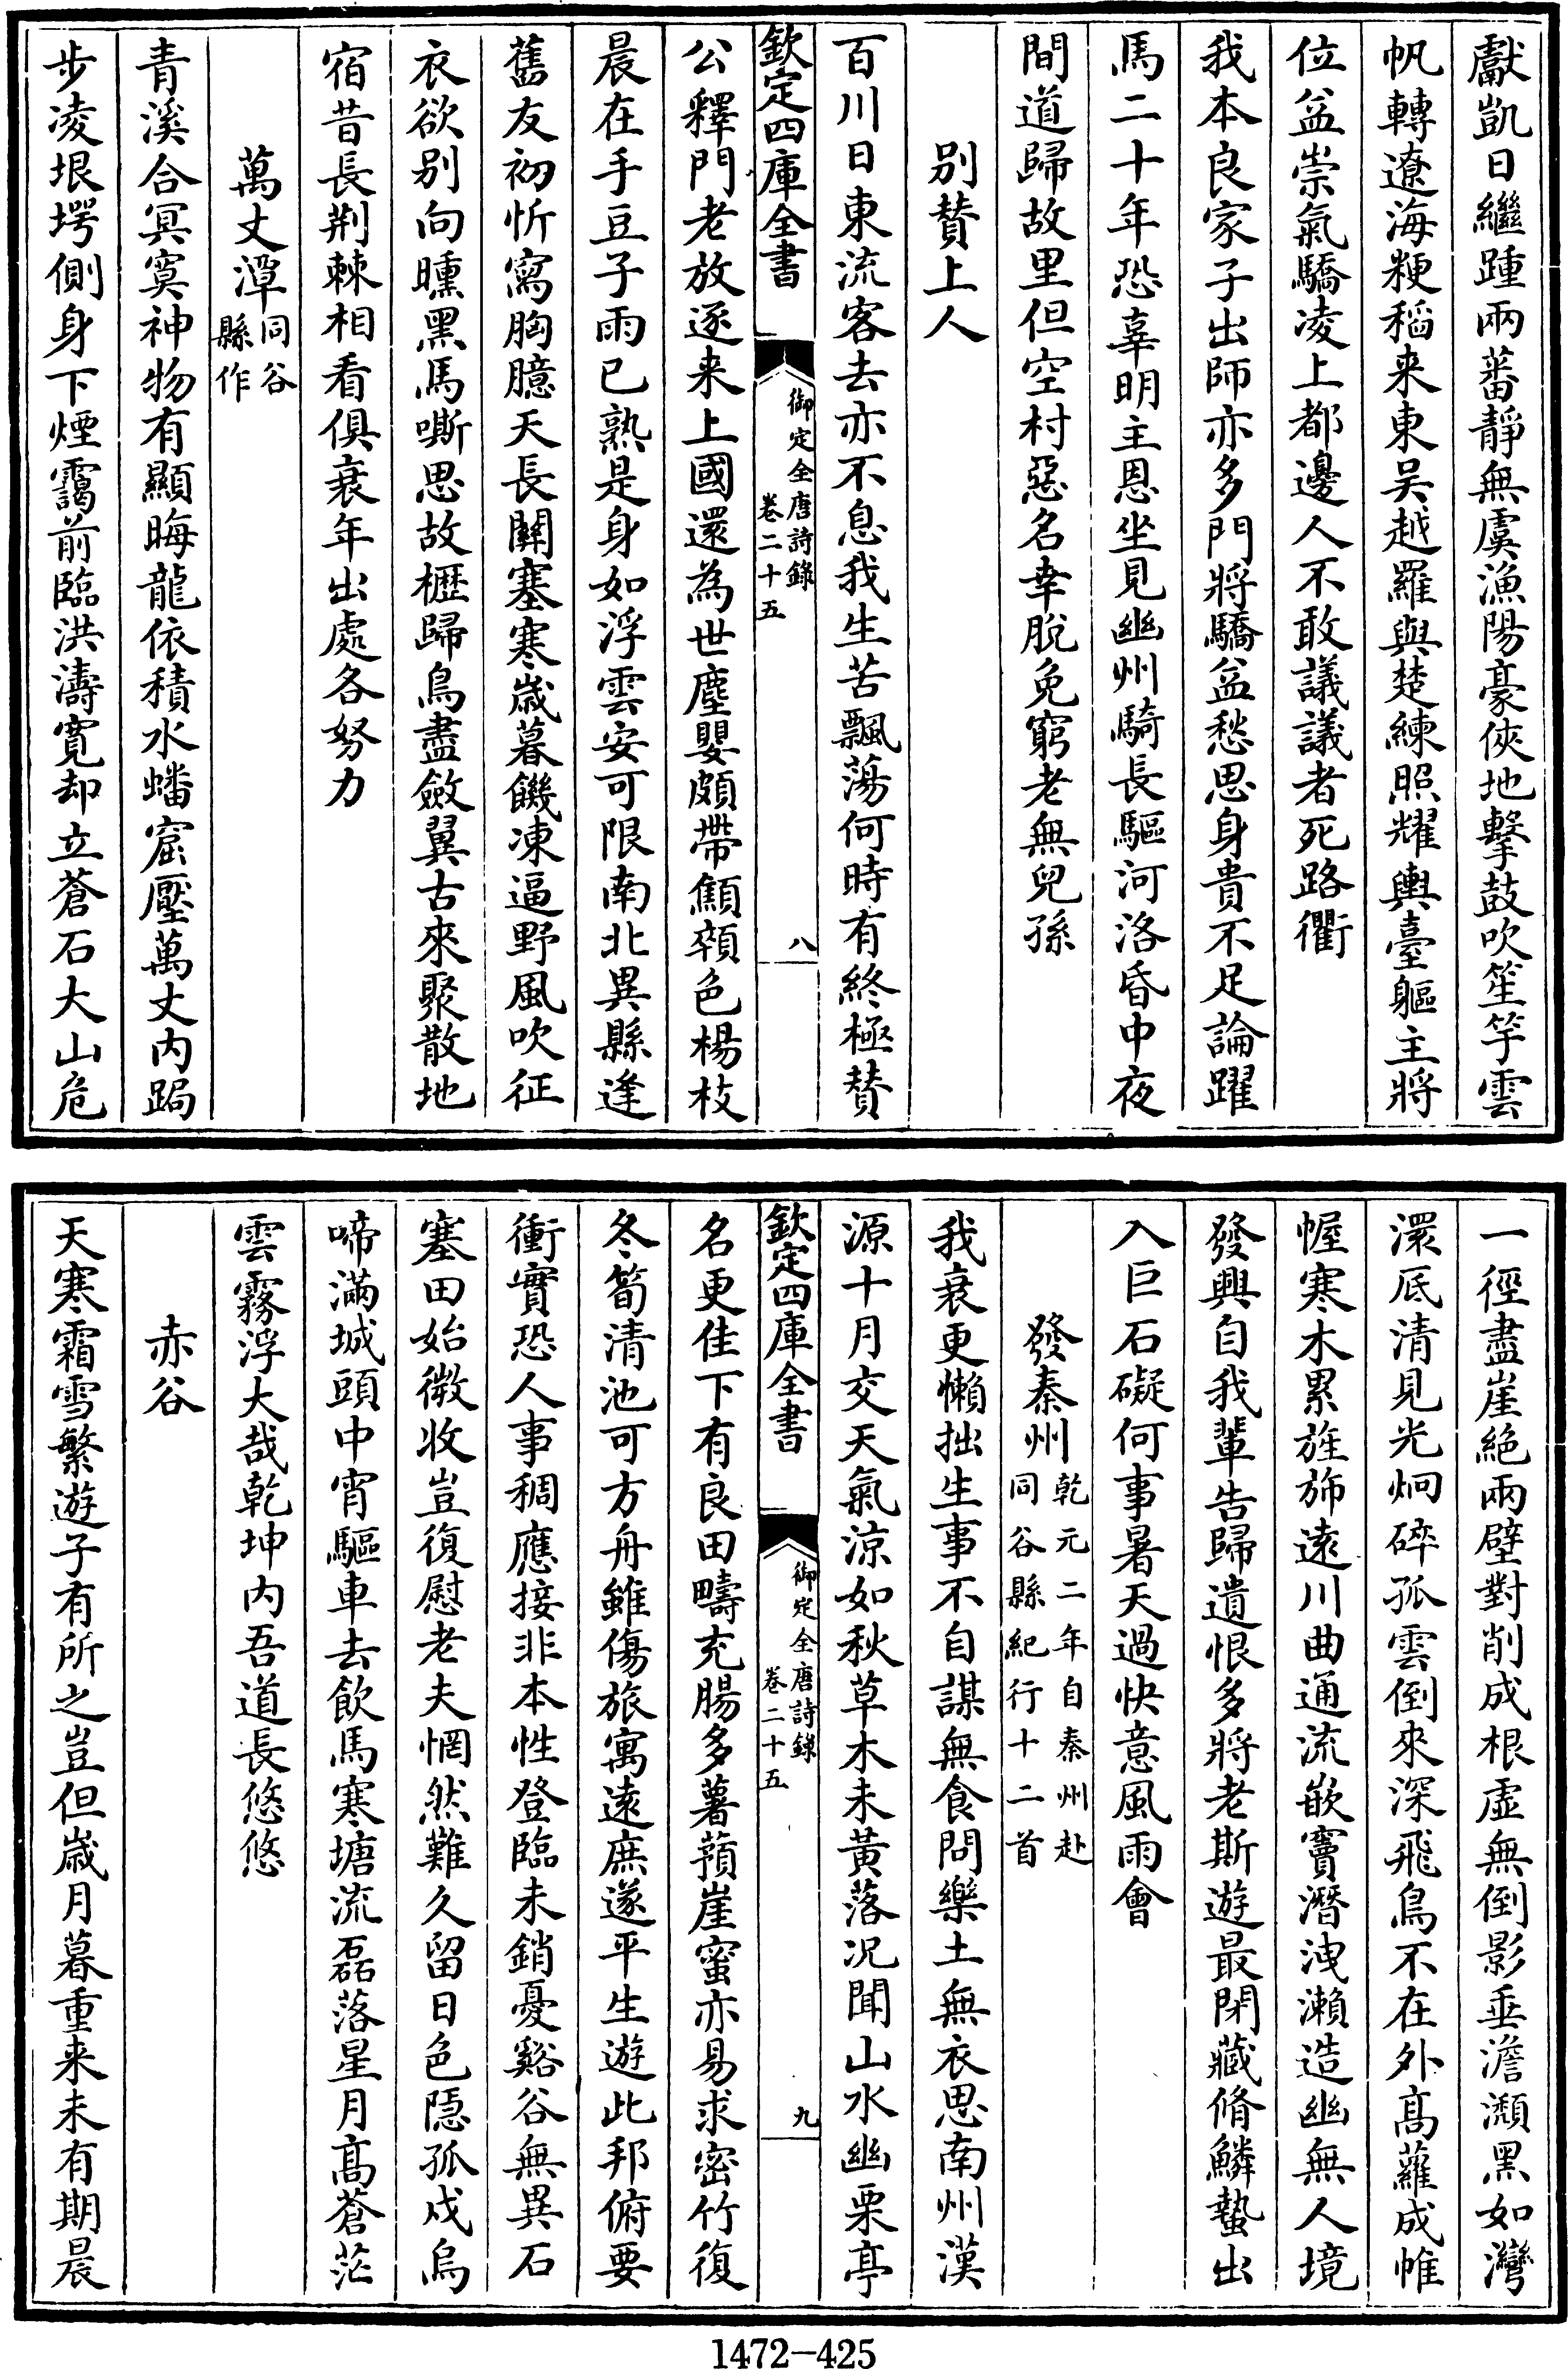 獻凱日繼踵兩蕃靜無虞漁陽豪俠地擊鼓吹笙竽雲
帆轉遼海粳稻来東吴越羅與楚練照耀輿臺軀主將
位益崇氣驕凌上都邊人不敢議議者死路衢
我本良家子出師亦多門將驕益愁思身貴不足論躍
馬二十年恐辜明主恩坐見幽州騎長驅河洛昏中夜
間道歸故里但空村惡名幸脫免窮老無兒孫
别贊上人
百川日東流客去亦不息我生苦飄蕩何時有終極贊
欽定四庫全書
御定全唐詩錄
卷二十五
八
公釋門老放逐来上國還為世塵嬰頗帶顦顇色楊枝
晨在手豆子雨已熟是身如浮雲安可限南北異縣逢
舊友初忻寫胸臆天長關塞寒歲暮饑凍逼野風吹征
衣欲别向曛黑馬嘶思故櫪歸鳥盡斂翼古來聚散地
宿昔長荆棘相看俱衰年出處各努力
萬丈潭同谷縣作
青溪合冥寞神物有顯晦龍依積水蟠窟壓萬丈内跼
步凌垠堮側身下煙靄前臨洪濤寬却立蒼石大山危
一徑盡崖絶兩壁對削成根虚無倒影垂澹瀩黑如灣
澴底清見光炯碎孤雲倒來深飛鳥不在外髙蘿成帷
幄寒木累旌斾逺川曲通流嵌竇潛洩瀨造幽無人境
發興自我輩告歸遺恨多將老斯遊最閉藏脩鱗蟄出
入巨石礙何事暑天過快意風雨會
發秦州乾元二年自秦州赴同谷縣紀行十二首
我衰更懶拙生事不自謀無食問樂土無衣思南州漢
源十月交天氣凉如秋草木未黄落况聞山水幽栗亭
欽定四庫全書
御定全唐詩錄
卷二十五
九
名更佳下有良田疇充腸多薯蕷崖蜜亦易求密竹復
冬筍清池可方舟雖傷旅寓逺庶遂平生遊此邦俯要
衝實恐人事稠應接非本性登臨未銷憂谿谷無異石
塞田始微收豈復慰老夫惘然難久留日色隱孤戍烏
啼滿城頭中宵驅車去飲馬寒塘流磊落星月髙蒼茫
雲霧浮大哉乾坤内吾道長悠悠
赤谷
天寒霜雪繁遊子有所之豈但歲月暮重来未有期晨
1472-425